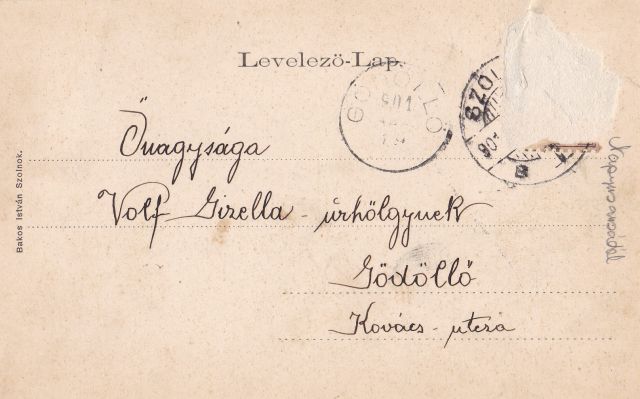 Levelező-Lap.
GÖDÖLLŐ
901
SZOL
901
Őnagysága
Volf Gizella úrhölgynek
Gödöllő
Kovács-utcza
Bakos István Szolnok.